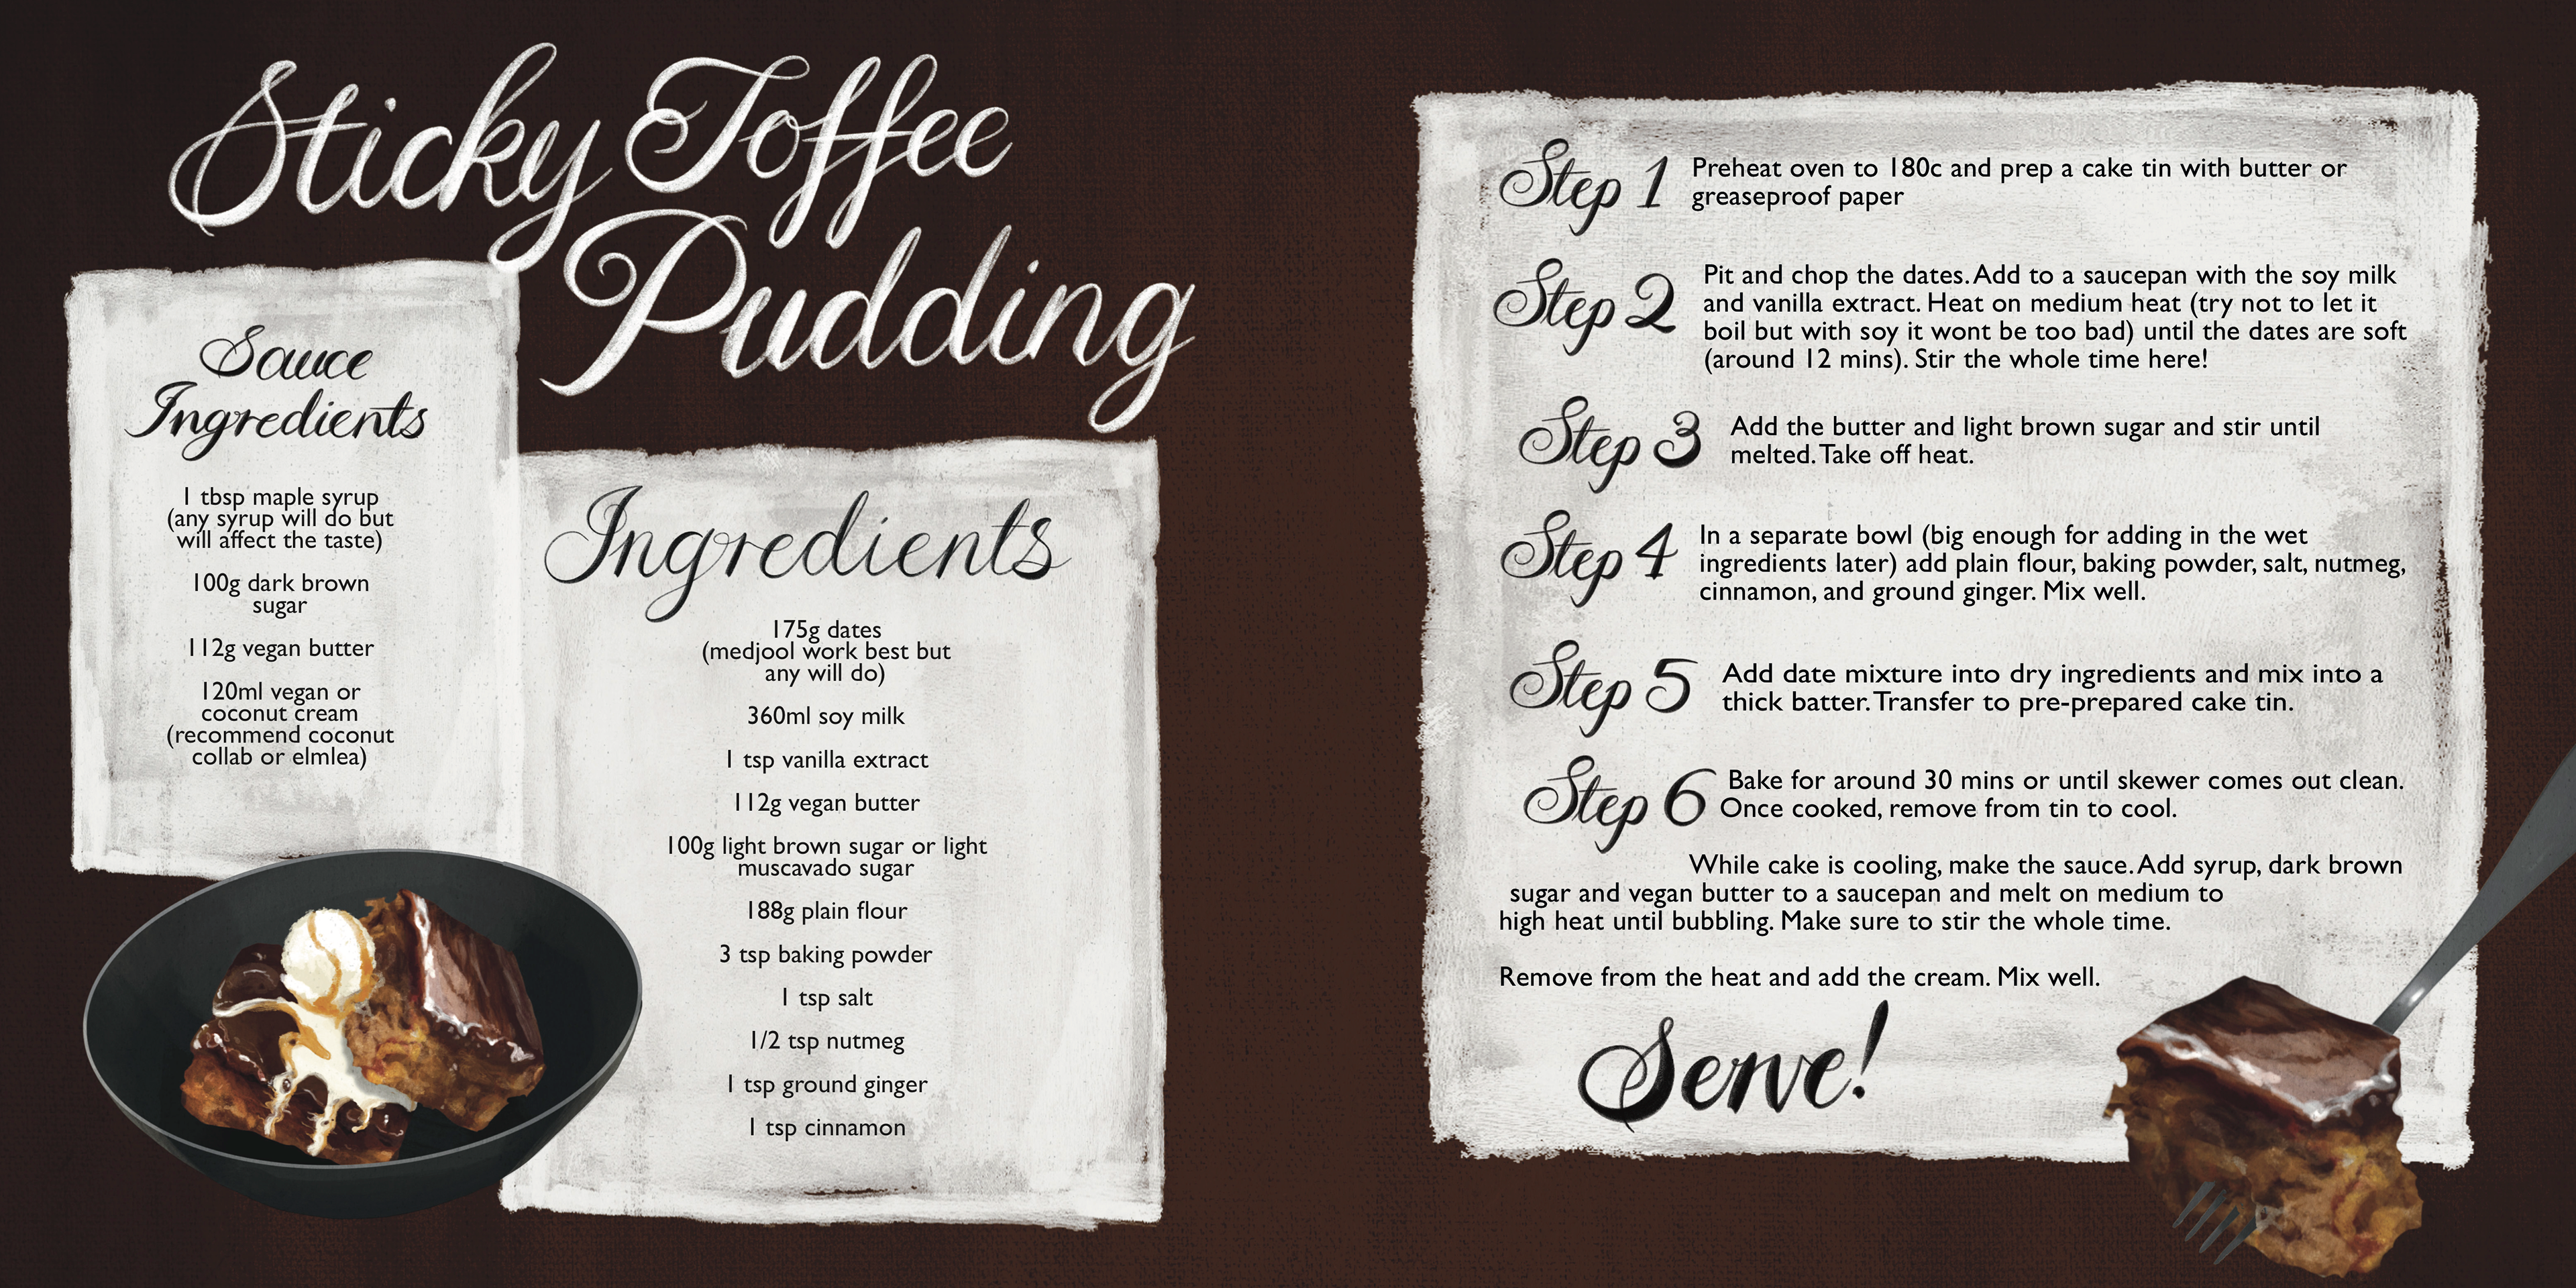 Sticky Toffee
Pudding
Sauce
Ingredients
1 tbsp maple syrup
(any syrup will do but
will affect the taste)
100g dark brown
sugar
112g vegan butter
120ml vegan or
coconut cream
(recommend coconut
collab or elmlea)
Ingredients
175g dates
(medjool work best but
any will do)
360ml soy milk
1 tsp vanilla extract
112g vegan butter
100g light brown sugar or light
muscavado sugar
188g plain flour
3 tsp baking powder
1 tsp salt
1/2 tsp nutmeg
1 tsp ground ginger
1 tsp cinnamon
Step 1 Preheat oven to 180c and prep a cake tin with butter or
greaseproof paper
Step 2 Pit and chop the dates. Add to a saucepan with the soy milk
and vanilla extract. Heat on medium heat (try not to let it
boil but with soy it wont be too bad) until the dates are soft
(around 12 mins). Stir the whole time here!
Step 3 Add the butter and light brown sugar and stir until
melted. Take off heat.
Step 4 In a separate bowl (big enough for adding in the wet
ingredients later) add plain flour, baking powder, salt, nutmeg,
cinnamon, and ground ginger. Mix well.
Step 5 Add date mixture into dry ingredients and mix into a
thick batter. Transfer to pre-prepared cake tin.
Step 6 Bake for around 30 mins or until skewer comes out clean.
Once cooked, remove from tin to cool.
While cake is cooling, make the sauce. Add syrup, dark brown
sugar and vegan butter to a saucepan and melt on medium to
high heat until bubbling. Make sure to stir the whole time.
Remove from the heat and add the cream. Mix well.
Serve!